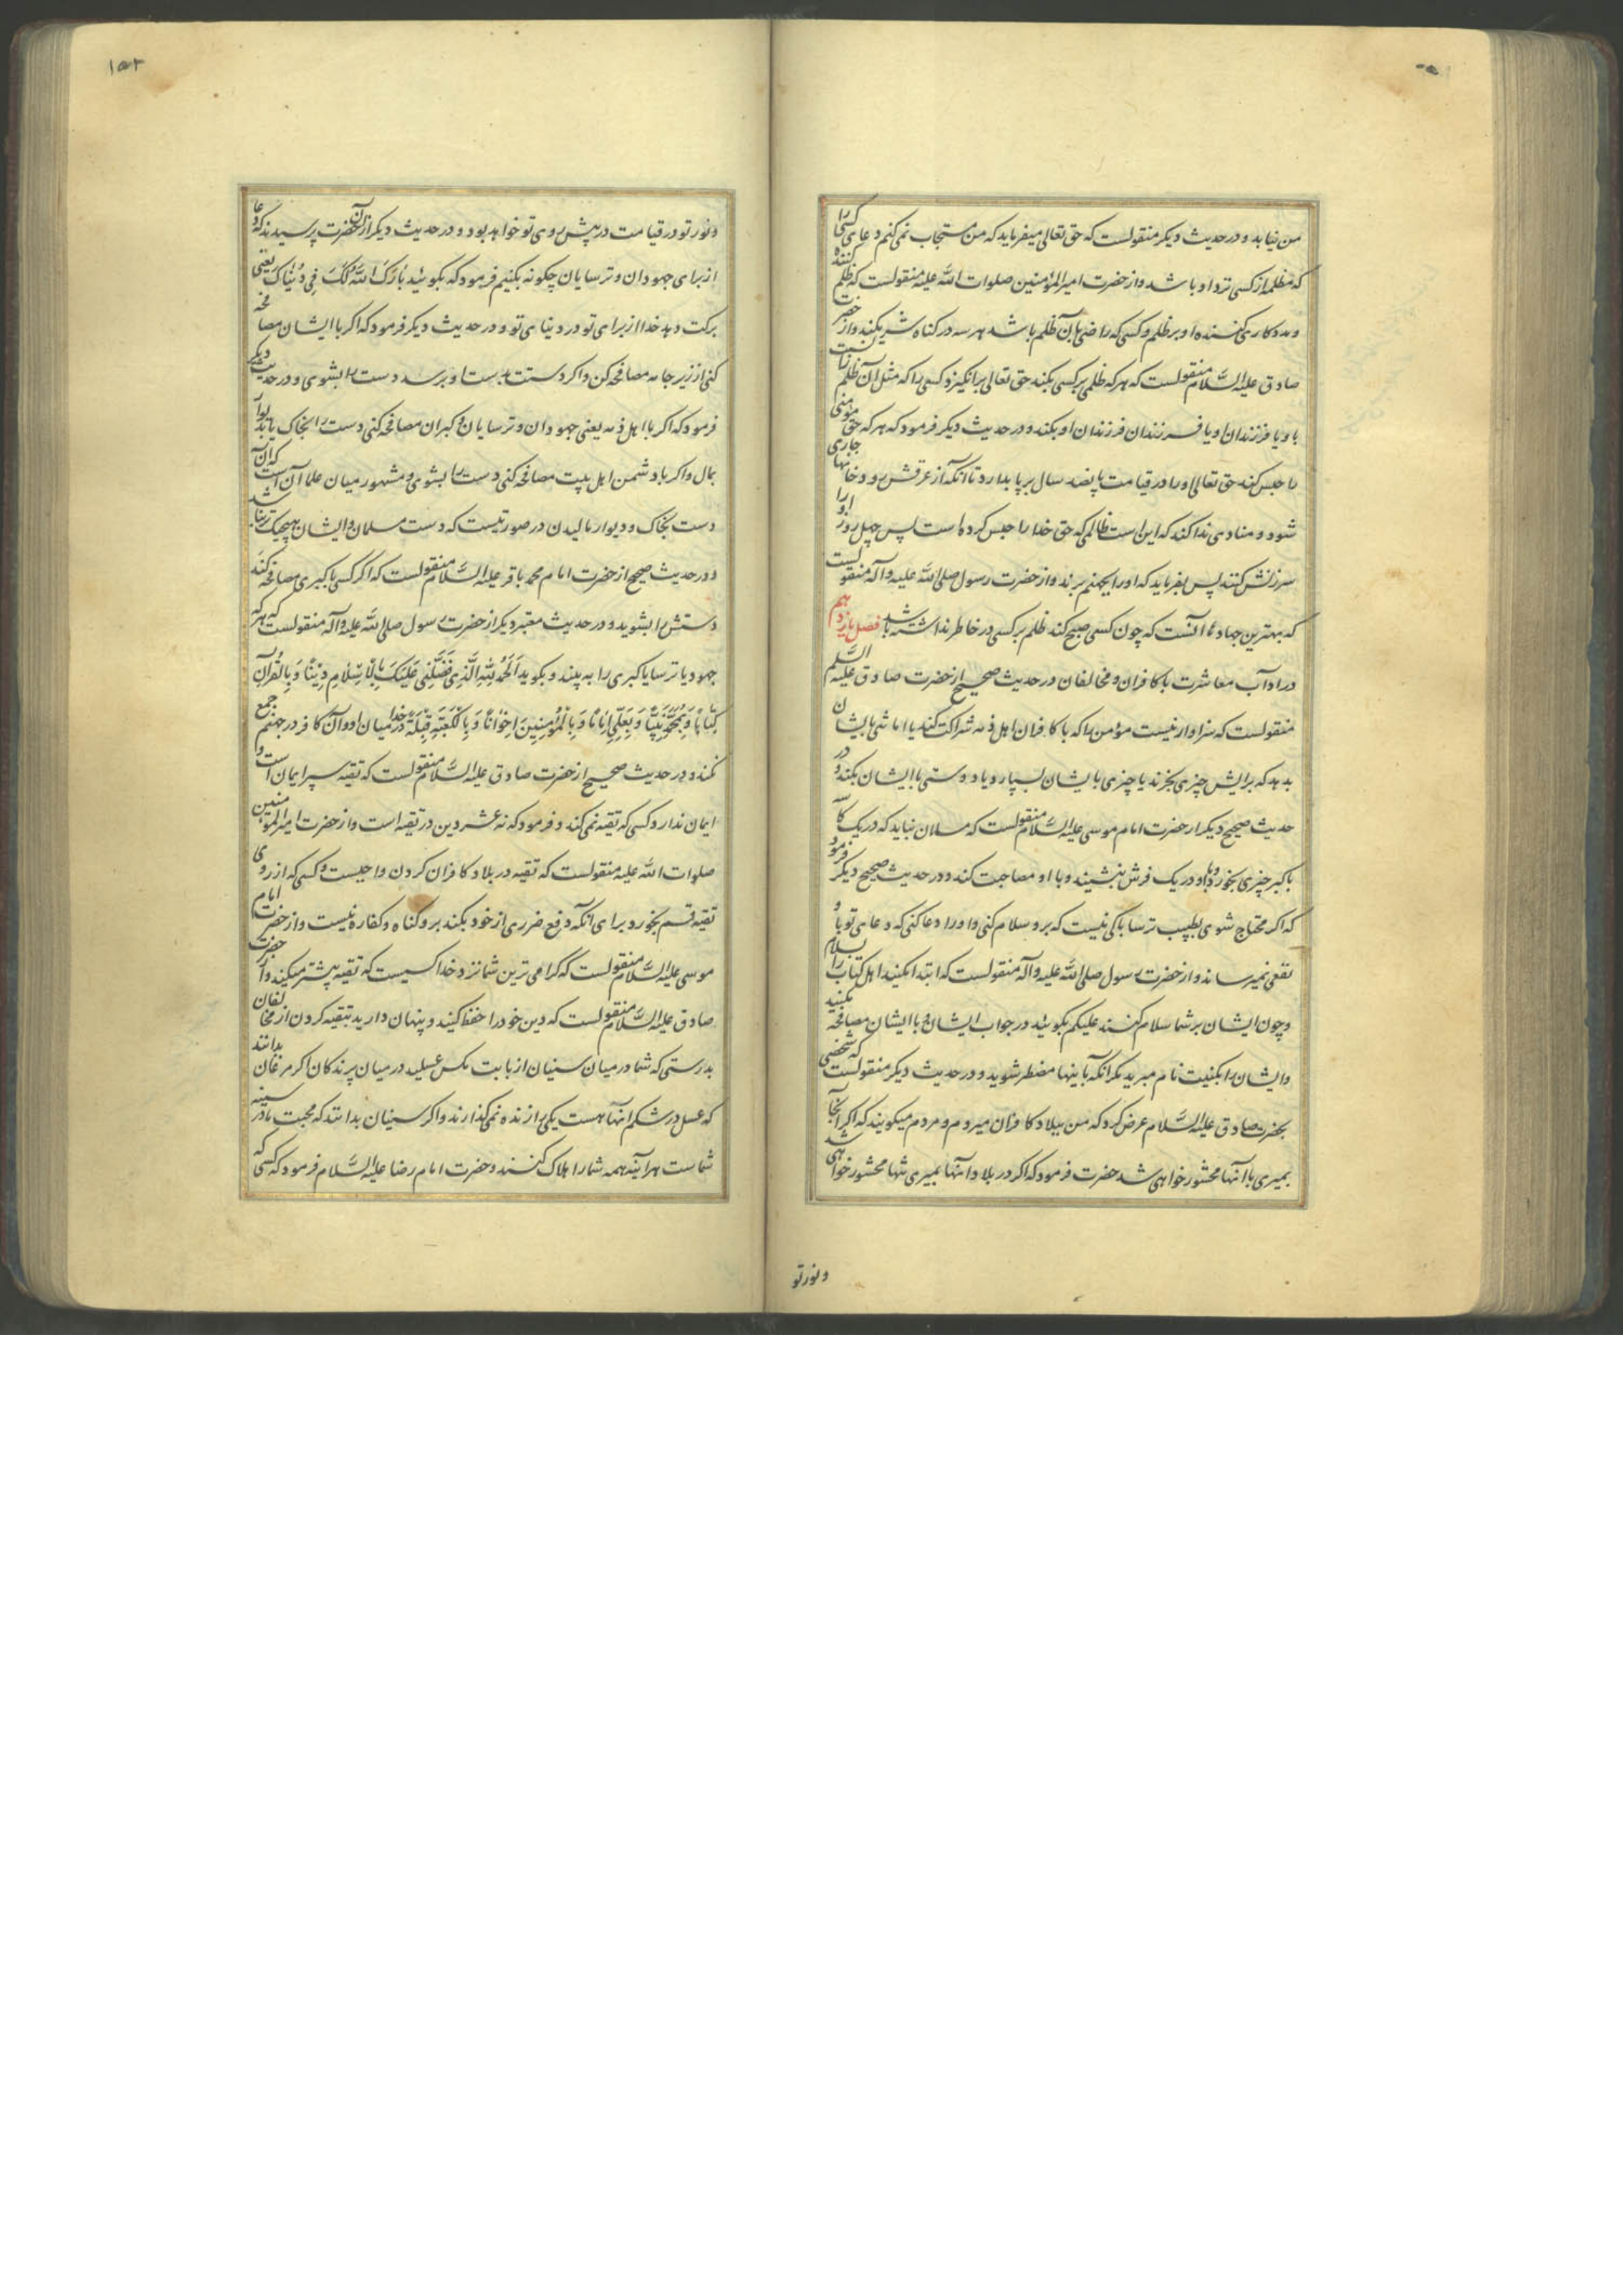 من نیاید و در حدیث دیگر منقولست که حق تعالی میفرماید که من مستجاب نمی کنم دعای کسی را
که مظلمه از کسی نزد او باشد و از حضرت امیرالمؤمنین صلوات الله علیه منقولست که ظلم کننده
و مددکاری کننده او بر ظلم و کسی که راضی بآن ظلم باشد هر سه در گناه شریکند و از حضرت
صادق علیه السّلام منقولست که هر که ظلمی بر کسی بکند حق تعالی برانگیزد کسی را که مثل آن ظلم نسبت
باو یا فرزندان او یا فرزندان فرزندان او بکند و در حدیث دیگر فرمود که هر که حق مومنی
را حبس کند حق تعالی او را در قیامت پانصد سال بر پا بدارد تا آنکه از عرقش رودخانها جاری
شود و منادی ندا کند که این است ظالمی که حق خدا را حبس کرده است پس چهل روز او را
سرزنش کنند پس بفرماید که او را بجهنم برند و از حضرت رسول صلی الله علیه و آله منقولست
که بهترین جهادها آنست که چون کسی صبح کند ظلم بر کسی در خاطر نداشته باشد فصل یازدهم
در آداب معاشرت با کافران و مخالفان در حدیث صحیح از حضرت صادق علیه السّلم
منقولست که سزاوار نیست مؤمن را که با کافران اهل ذمه شراکت کند یا امانتی بایشان
بدهد که برایش چیزی بخرند یا چیزی بایشان بسپارد یا دوستی با ایشان بکند و در
حدیث صحیح دیگر از حضرت امام موسی علیه السّلام منقولست که مسلمان نباید که در یک کاسه
با گبر چیزی بخورد و با او در یک فرش بنشیند و با او مصاحبت کند و در حدیث صحیح دیگر فرمود
که اگر محتاج شوی بطبیب ترسا باکی نیست که برو سلام کنی و او را دعا کنی که دعای تو باو
نفعی نمیرساند و از حضرت رسول صلی الله علیه و آله منقولست که ابتدا مکنید اهل کتاب را بسلام
و چون ایشان بر شما سلام کنند علیکم بگوئید در جواب ایشان و با ایشان مصافحه مکنید
و ایشان را بکنیت نام مبرید مگر آنکه باینها مضطر شوید و در حدیث دیگر منقولست که شخصی
بحضرت صادق علیه السّلام عرض کرد که من ببلاد کافران میروم و مردم میگویند که اگر آنجا
بمیری با آنها محشور خواهی شد حضرت فرمود که اگر در بلاد آنها بمیری تنها محشور خواهی شد
و نور تو
۱۵۲
و نور تو در قیامت در پیش روی تو خواهد بود و در حدیث دیگر از آن حضرت پرسیدند که دعا
از برای جهودان و ترسایان چگونه بکنیم فرمود که بگوئید بَارَكَ اللّٰهُ لَكَ فِي دُنْيَاكَ یعنی
برکت دهد خدا از برای تو در دنیای تو و در حدیث دیگر فرمود که اگر با ایشان مصافحه
کنی از زیر جامه مصافحه کن و اگر دستت بدست او برسد دست را بشوی و در حدیث دیگر
فرمود که اگر با اهل ذمه یعنی جهودان و ترسایان و گبران مصافحه کنی دست را بخاک یا بدیوار
بمال و اگر با دشمن اهل بیت مصافحه کنی دست را بشوی و مشهور میان علما آن است که آن
دست بخاک و دیوار مالیدن در صورتیست که دست مسلمان و ایشان هیچیک تر نباشد
و در حدیث صحیح از حضرت امام محمد باقر علیه السّلام منقولست که اگر کسی با گبری مصافحه کند
دستش را بشوید و در حدیث معتبر دیگر از حضرت رسول صلی الله علیه و آله منقولست که هر که
جهود یا ترسا یا گبری را به بیند و بگوید اَلحَمْدُ لِلّٰهِ الَّذِي فَضَّلَنِي عَلَيْكَ بِالْاِسْلَامِ دِيْنًا وَ بِالْقُرْآنِ
كِتَابًا وَ بِمُحَمَّدٍ نَبِيًّا وَ بِعَلِيٍّ اِمَامًا وَ بِالْمُؤْمِنِينَ اِخْوَانًا وَ بِالْكَعْبَةِ قِبْلَةً خدا میان او و آن کافر در جهنم جمع
نکند و در حدیث صحیح از حضرت صادق علیه السّلام منقولست که تقیه سپر ایمان است و
ایمان ندارد کسی که تقیه نمی کند و فرمود که نه عشر دین در تقیه است و از حضرت امیرالمؤمنین
صلوات الله علیه منقولست که تقیه در بلاد کافران کردن واجبست و کسی که از روی
تقیه قسم بخورد برای آنکه دفع ضرری از خود بکند برو گناه و کفاره نیست و از حضرت امام
موسی علیه السّلام منقولست که گرامی ترین شما نزد خدا کسیست که تقیه بیشتر میکند و از حضرت
صادق علیه السّلام منقولست که دین خود را حفظ کنید و پنهان دارید بتقیه کردن از مخالفان
بدرستی که شما در میان سنیان از بابت مگس عسلید در میان پرندگان اگر مرغان بدانند
که عسل در شکم آنها هست یکی را زنده نمی گذارند و اگر سنیان بدانند که محبت ما در سینه
شماست هر آینه همه شما را هلاک کنند و حضرت امام رضا علیه السّلام فرمود که کسی که